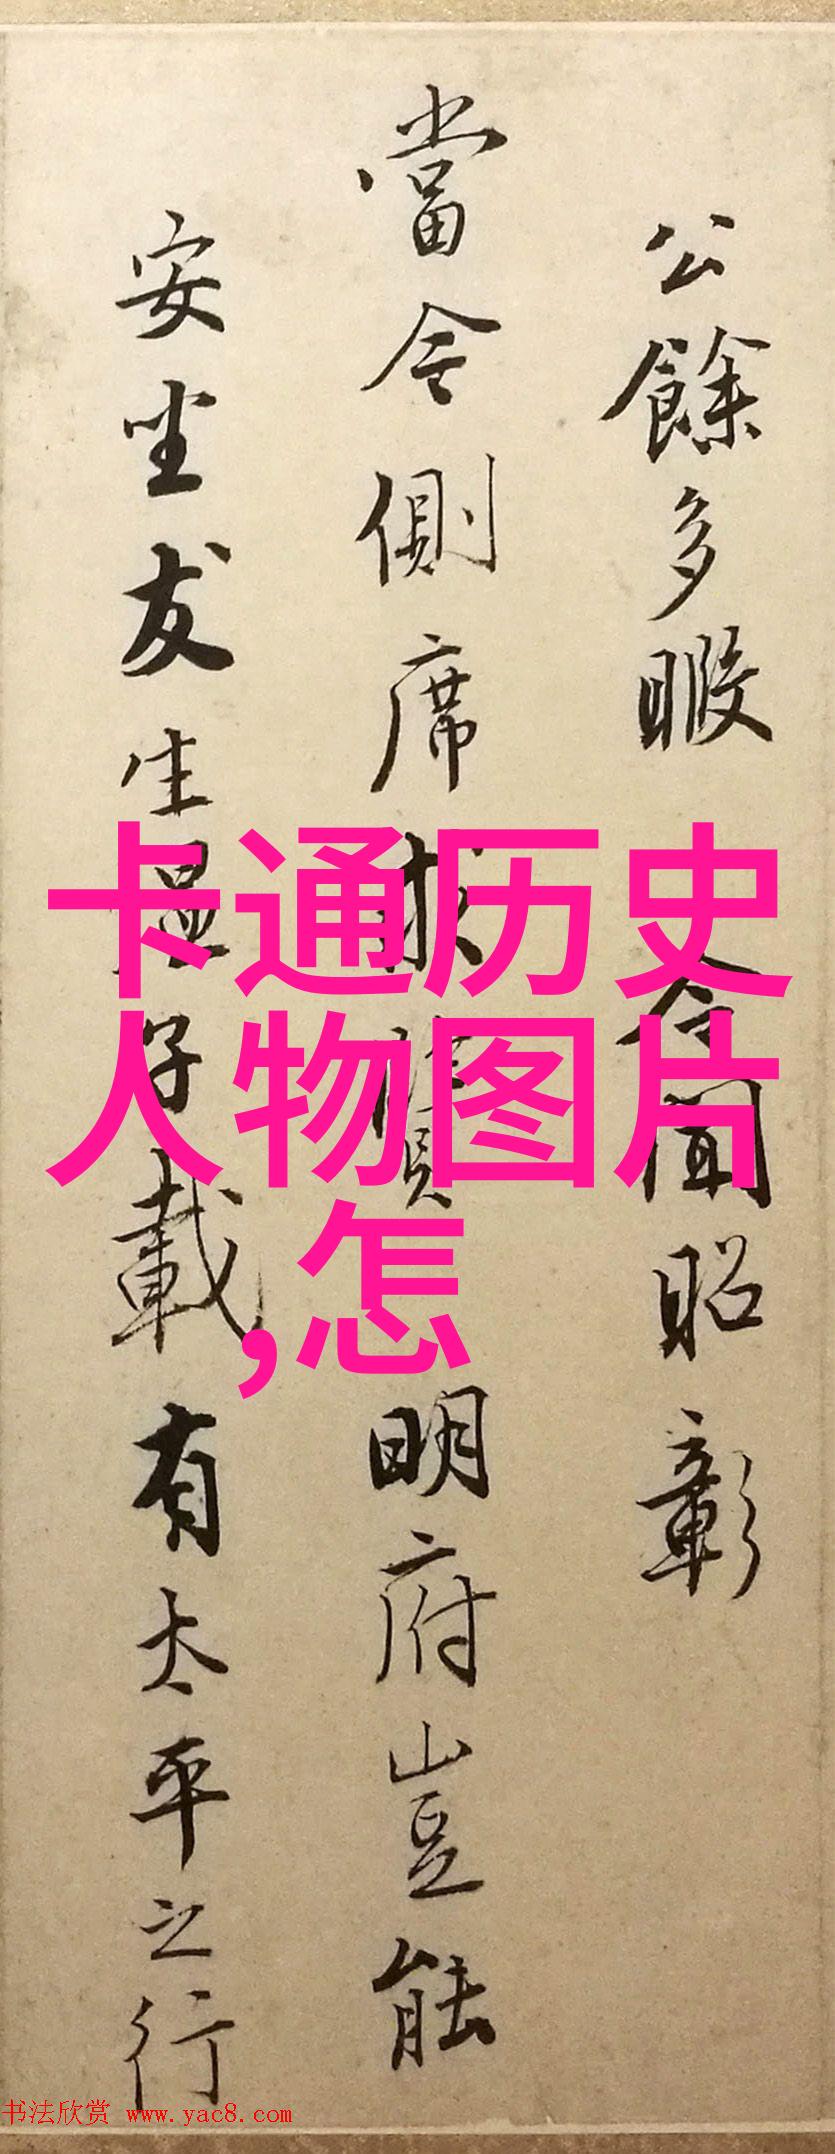 公餘多暇令聞昭彰
當今側席求賢明府豈能
安坐友生温子載有太平之行
卡通历史
人物图片
,怎
书法欣赏 www.yac8.com